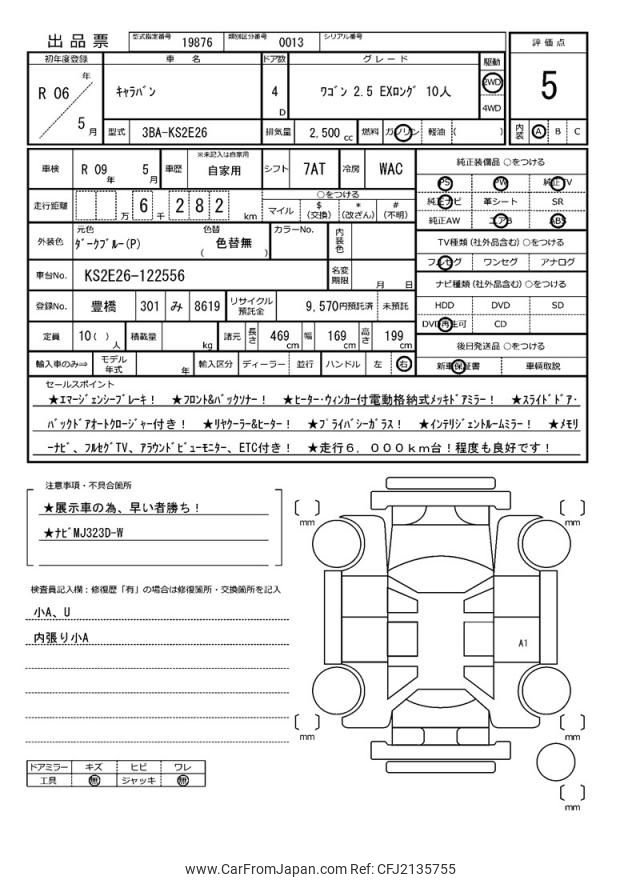 出品票 型式指定番号 19876 類別区分番号 0013 シリアル番号
初年度登録 車名 ドア数 グレード 駆動 評価点
R 06 年 5 月 キャラバン 4 D ワゴン 2.5 EXロング 10人 2WD 4WD 5
型式 3BA-KS2E26 排気量 2,500 cc 燃料 ガソリン 軽油 ( ) 内装 A B C
車検 R 09 年 5 月 車歴 ※未記入は自家用 自家用 シフト 7AT 冷房 WAC 純正装備品 ○をつける
PS PW 純正TV
走行距離 万 6 千 2 8 2 km ○をつける マイル $ (交換) * (改ざん) # (不明) 純正ナビ 革シート SR
純正AW エアB ABS
外装色 元色 ダークブルー(P) 色替 ( 色替無 ) カラーNo. 内装色 TV種類 (社外品含む) ○をつける
フルセグ ワンセグ アナログ
車台No. KS2E26-122556 名変期限 月 日 ナビ種類 (社外品含む) ○をつける
登録No. 豊橋 301 み 8619 リサイクル預託金 9,570円預託済 未預託 HDD DVD SD
DVD再生可 CD
定員 10( )人 積載量 kg 諸元 長さ 469 cm 幅 169 cm 高さ 199 cm 後日発送品 ○をつける
輸入車のみ⇒ モデル年式 年 輸入区分 ディーラー 並行 ハンドル 左 右 新車保証書 車輌取説
セールスポイント
★エマージェンシーブレーキ！ ★フロント&バックソナー！ ★ヒーター・ウィンカー付電動格納式メッキドアミラー！ ★スライドドア・
バックドアオートクロージャー付き！ ★リヤクーラー&ヒーター！ ★プライバシーガラス！ ★インテリジェントルームミラー！ ★メモリ
ーナビ、フルセグTV、アラウンドビューモニター、ETC付き！ ★走行６，０００ｋｍ台！程度も良好です！
注意事項・不具合箇所
★展示車の為、早い者勝ち！
★ナビMJ323D-W
mm
mm
検査員記入欄：修復歴「有」の場合は修復箇所・交換箇所を記入
小A、U
内張り小A
A1
mm
mm
ドアミラー キズ ヒビ ワレ
工具 無 ジャッキ 無
mm
www.CarFromJapan.com Ref: CFJ2135755